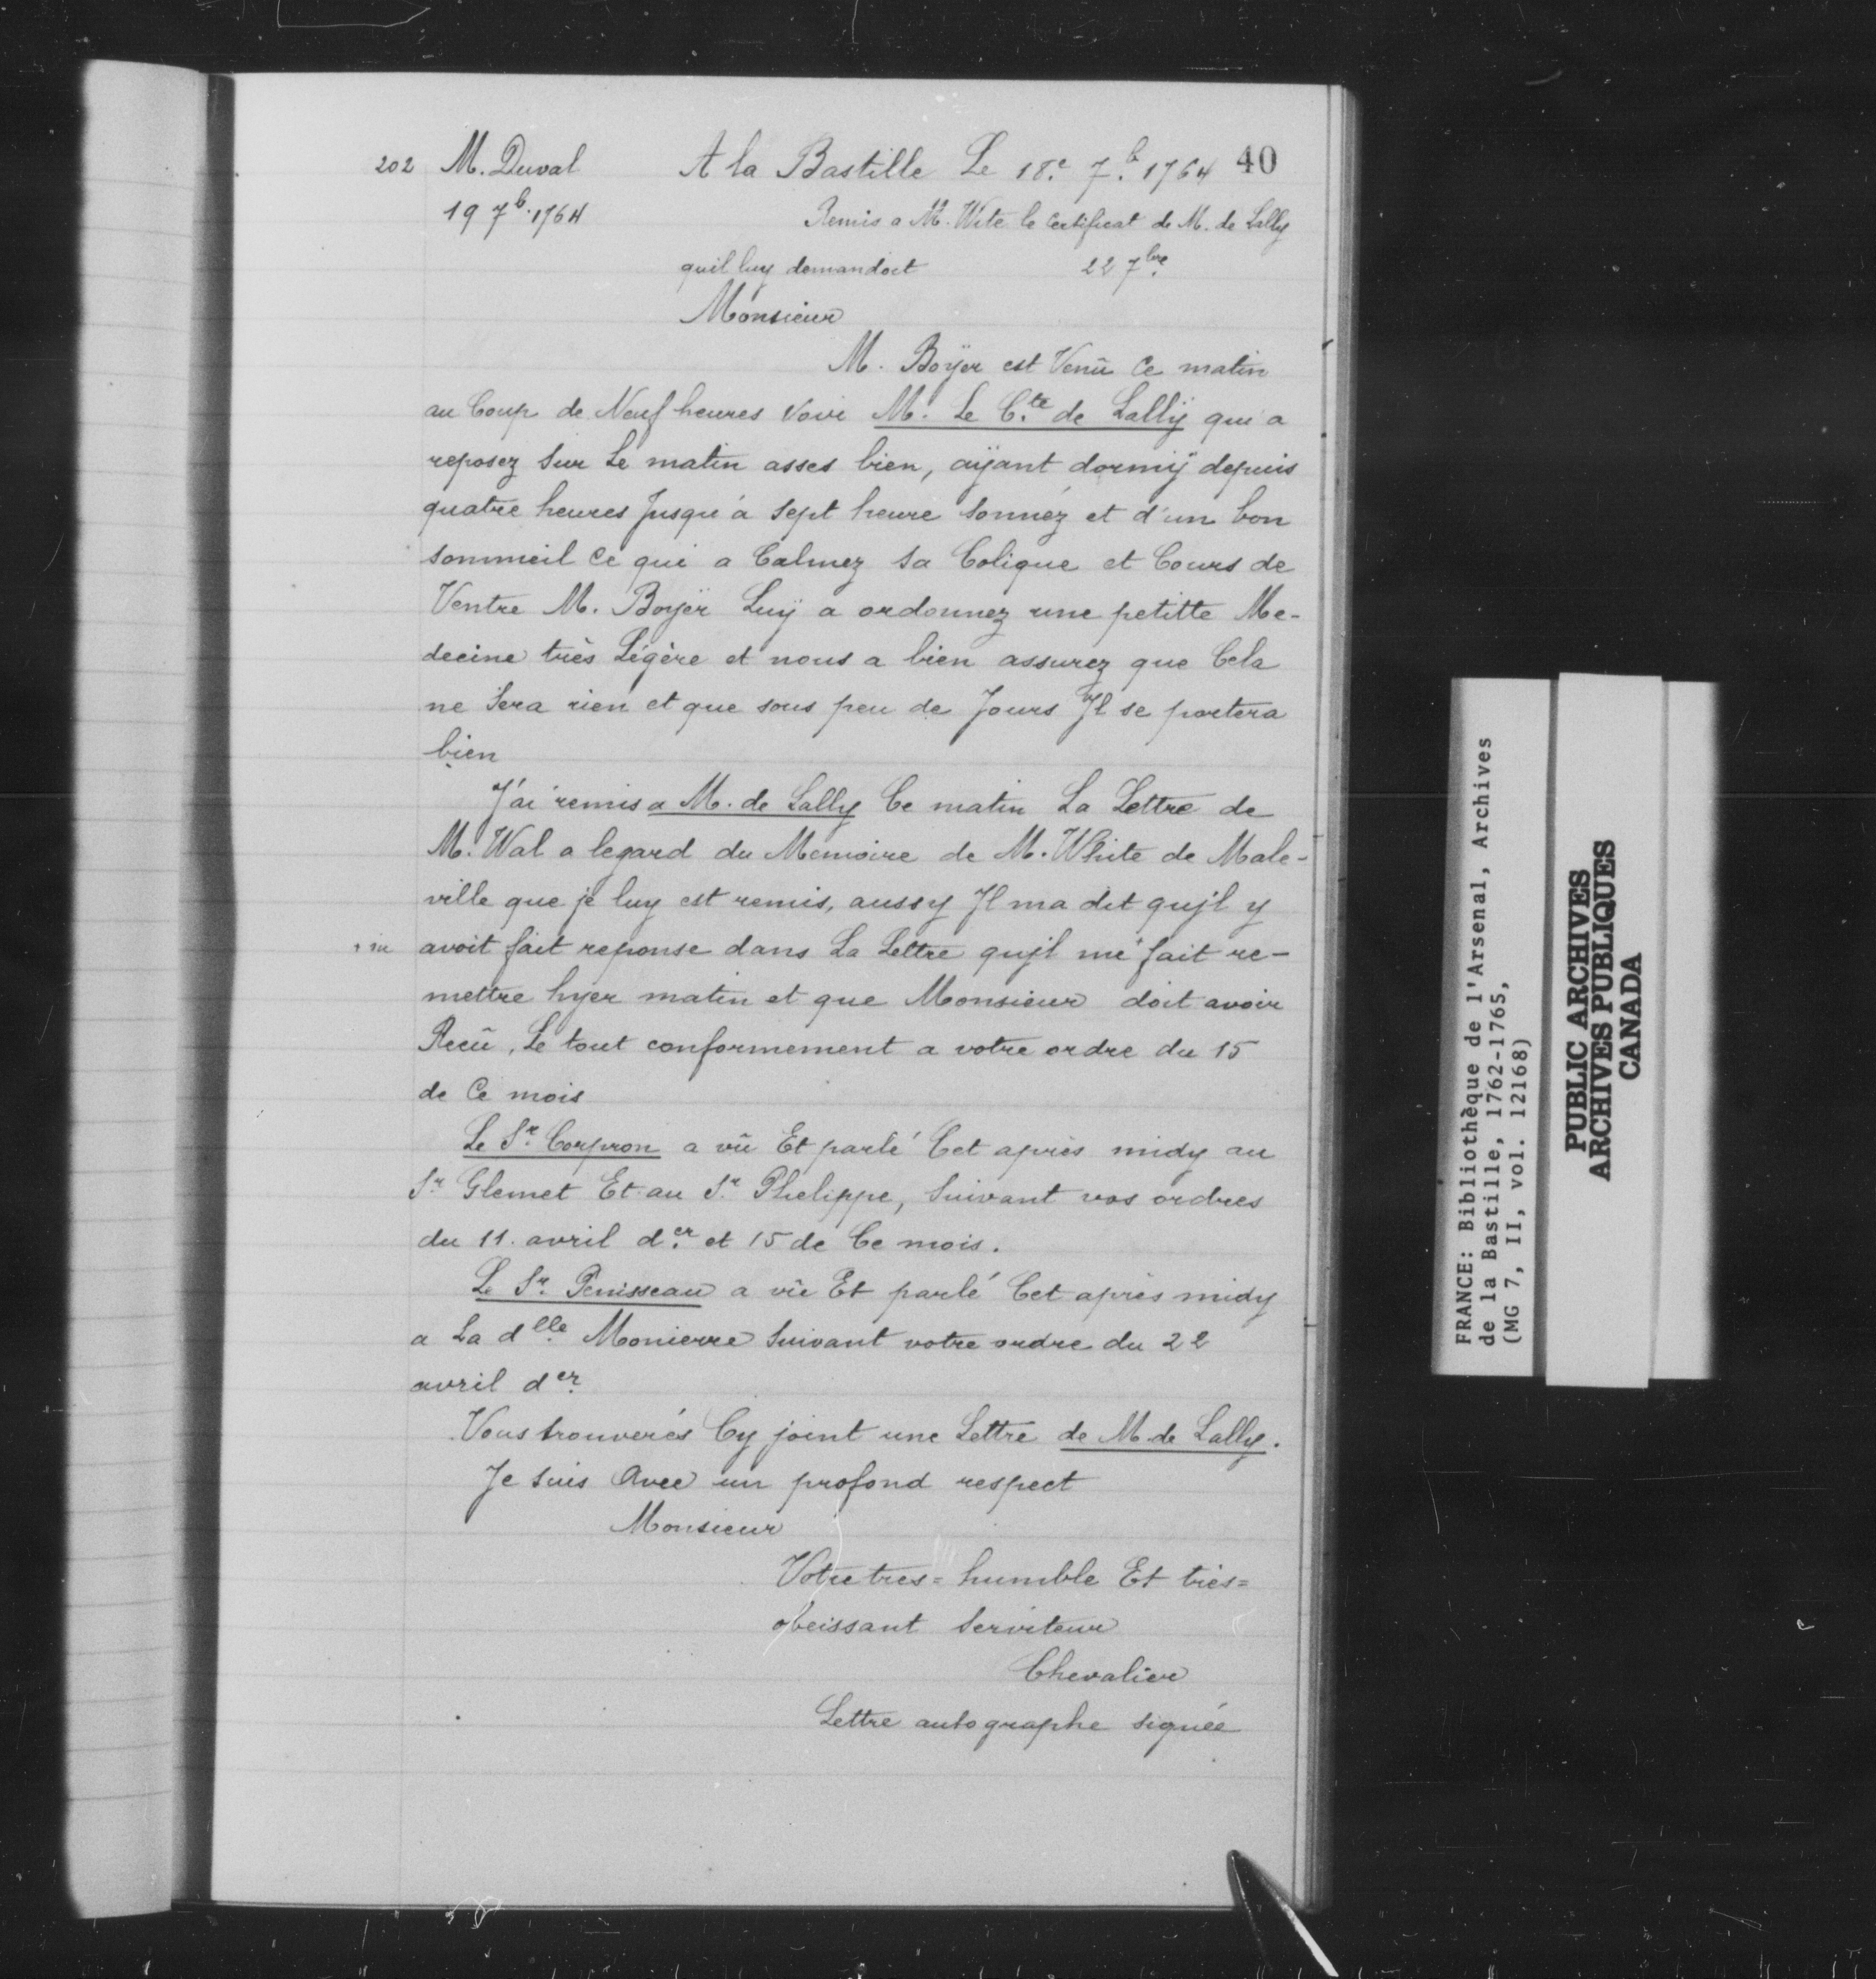 202 M. Duval A la Bastille Le 18.e 7.b 1764 40
19 7b. 1764 Remis a M. Wite le Certificat de M. de Lally
quil luy demandoit 22 7bre
Monsieur
M. Boÿer est Venû Ce matin
au Coup de Neuf heures Voir M. Le C.te de Lallÿ qui a
reposez Sur Le matin asses bien, aÿant dormiÿ depuis
quatre heures Jusqu'á Sept heure Sonnéz et d'un bon
sommeil Ce qui a Calmez Sa Colique et Cours de
Ventre M. Boyër Luÿ a ordonnez une petitte Me-
decine très Légère et nous a bien assurez que Cela
ne Sera rien et que sous peu de Jours Jl se portera
bien
J'ai remis a M. de Lally Ce matin La Lettre de
M. Wal a legard du Memoire de M. White de Male-
ville que je luy est remis, aussy Jl ma dit qujl y
avoit fait reponse dans La Lettre qujl me fait re-
mettre hyer matin et que Monsieur doit avoir
Recû, Le tout conformement a votre ordre du 15
de Ce mois
Le Sr. Corpron a vû Et parlé Cet après midy au
Sr Glemet Et au Sr Phelippe, Suivant vos ordres
du 11. avril d.er et 15 de Ce mois.
Le Sr. Penisseau a vû Et parlé Cet après midy
a La dlle Monierre Suivant votre ordre du 22
avril der.
Vous trouverés Cy joint une Lettre de M. de Lally.
Je Suis Avec un profond respect
Monsieur
Votre tres = humble Et très =
obeissant Serviteur
Chevalier
Lettre autographe signée
FRANCE: Bibliothèque de l'Arsenal, Archives
de la Bastille, 1762-1765,
(MG 7, II, vol. 12168)
PUBLIC ARCHIVES
ARCHIVES PUBLIQUES
CANADA